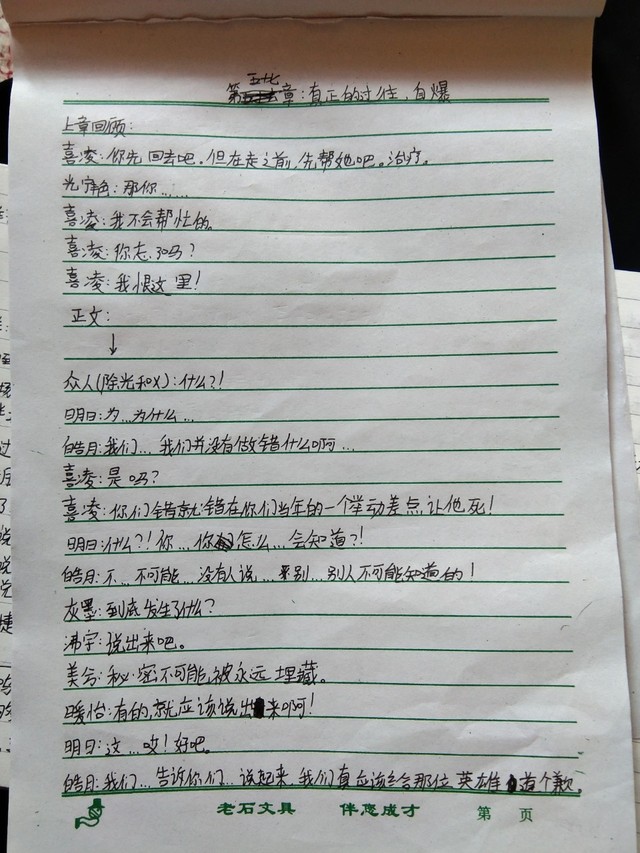 第五十七章:真正的过往,自爆
上章回顾:
喜凌:你先回去吧。但在走之前,先帮她吧。治疗。
光宇色:那你……
喜凌:我不会帮忙的。
喜凌:你走了吗?
喜凌:我恨这里!
正文:
↓
众人(除光和X):什么?!
明日:为…为什么…
皓月:我们…我们并没有做错什么啊…
喜凌:是吗?
喜凌:你们错就错在你们当年的一个举动差点让他死!
明日:什么?!你…你怎么…会知道?!
皓月:不…不可能…没有人说…来别…别人不可能知道的!
灰墨:到底发生了什么?
沸宇:说出来吧。
美兮:秘密不可能被永远埋藏。
暖怡:有的,就应该说出来啊!
明日:这…哎!好吧。
皓月:我们…告诉你们…说起来,我们真应该给那位英雄道个歉。
老石文具 伴您成才 第 页